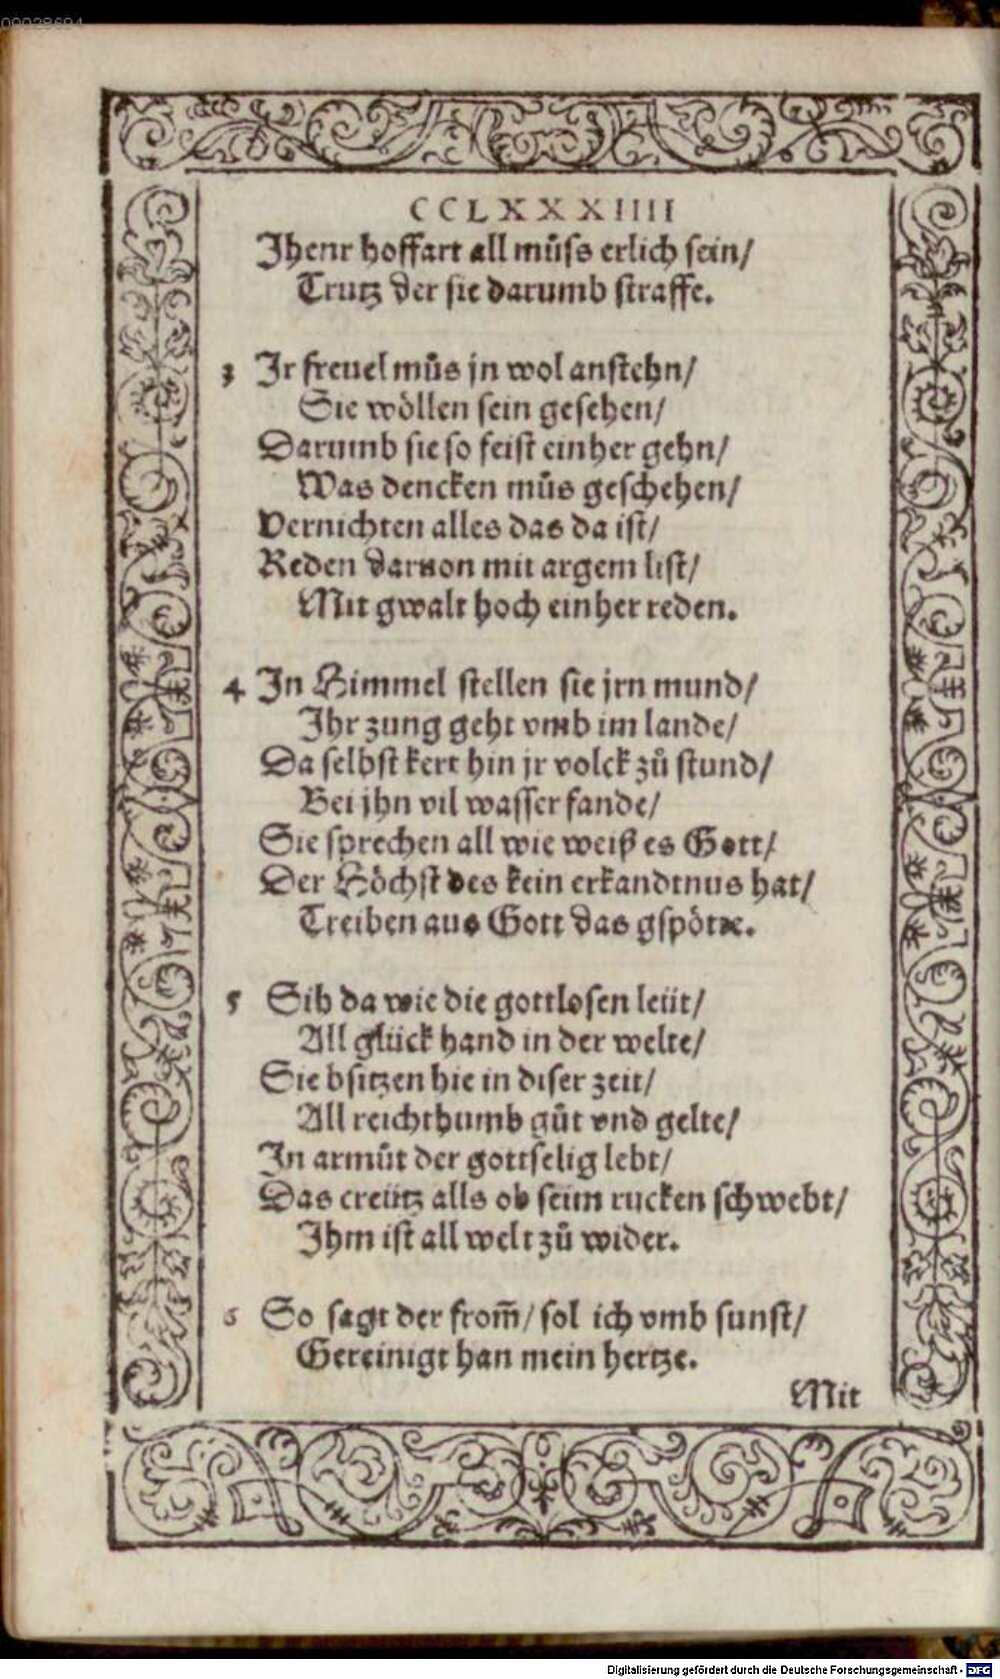 00028694
CCLXXXIIII
Jhenr hoffart all müss erlich sein/
Trutz der sie darumb straffe.
3 Ir freuel můs jn wol anstehn/
Sie wöllen sein gesehen/
Darumb sie so feist einher gehn/
Was dencken můs geschehen/
Vernichten alles das da ist/
Reden daruon mit argem list/
Mit gwalt hoch einher reden.
4 In Himmel stellen sie jrn mund/
Ihr zung geht vmb im lande/
Da selbst kert hin jr volck zů stund/
Bei jhn vil wasser fande/
Sie sprechen all wie weiß es Gott/
Der Höchst des kein erkandtnus hat/
Treiben aus Gott das gspötte.
5 Sih da wie die gottlosen leüt/
All glück hand in der welte/
Sie bsitzen hie in diser zeit/
All reichthumb gůt vnd gelte/
In armůt der gottselig lebt/
Das creütz alls ob seim rucken schwebt/
Ihm ist all welt zů wider.
6 So sagt der from̃/ sol ich vmb sunst/
Gereinigt han mein hertze.
Mit
Digitalisierung gefördert durch die Deutsche Forschungsgemeinschaft - DFG